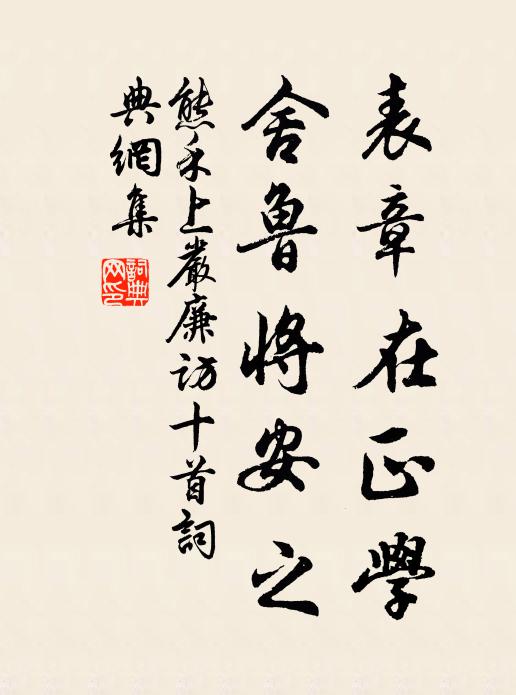 表章在正學
舍魯將安之
熊禾上嚴廉訪十首詞
典網集
詞典網印